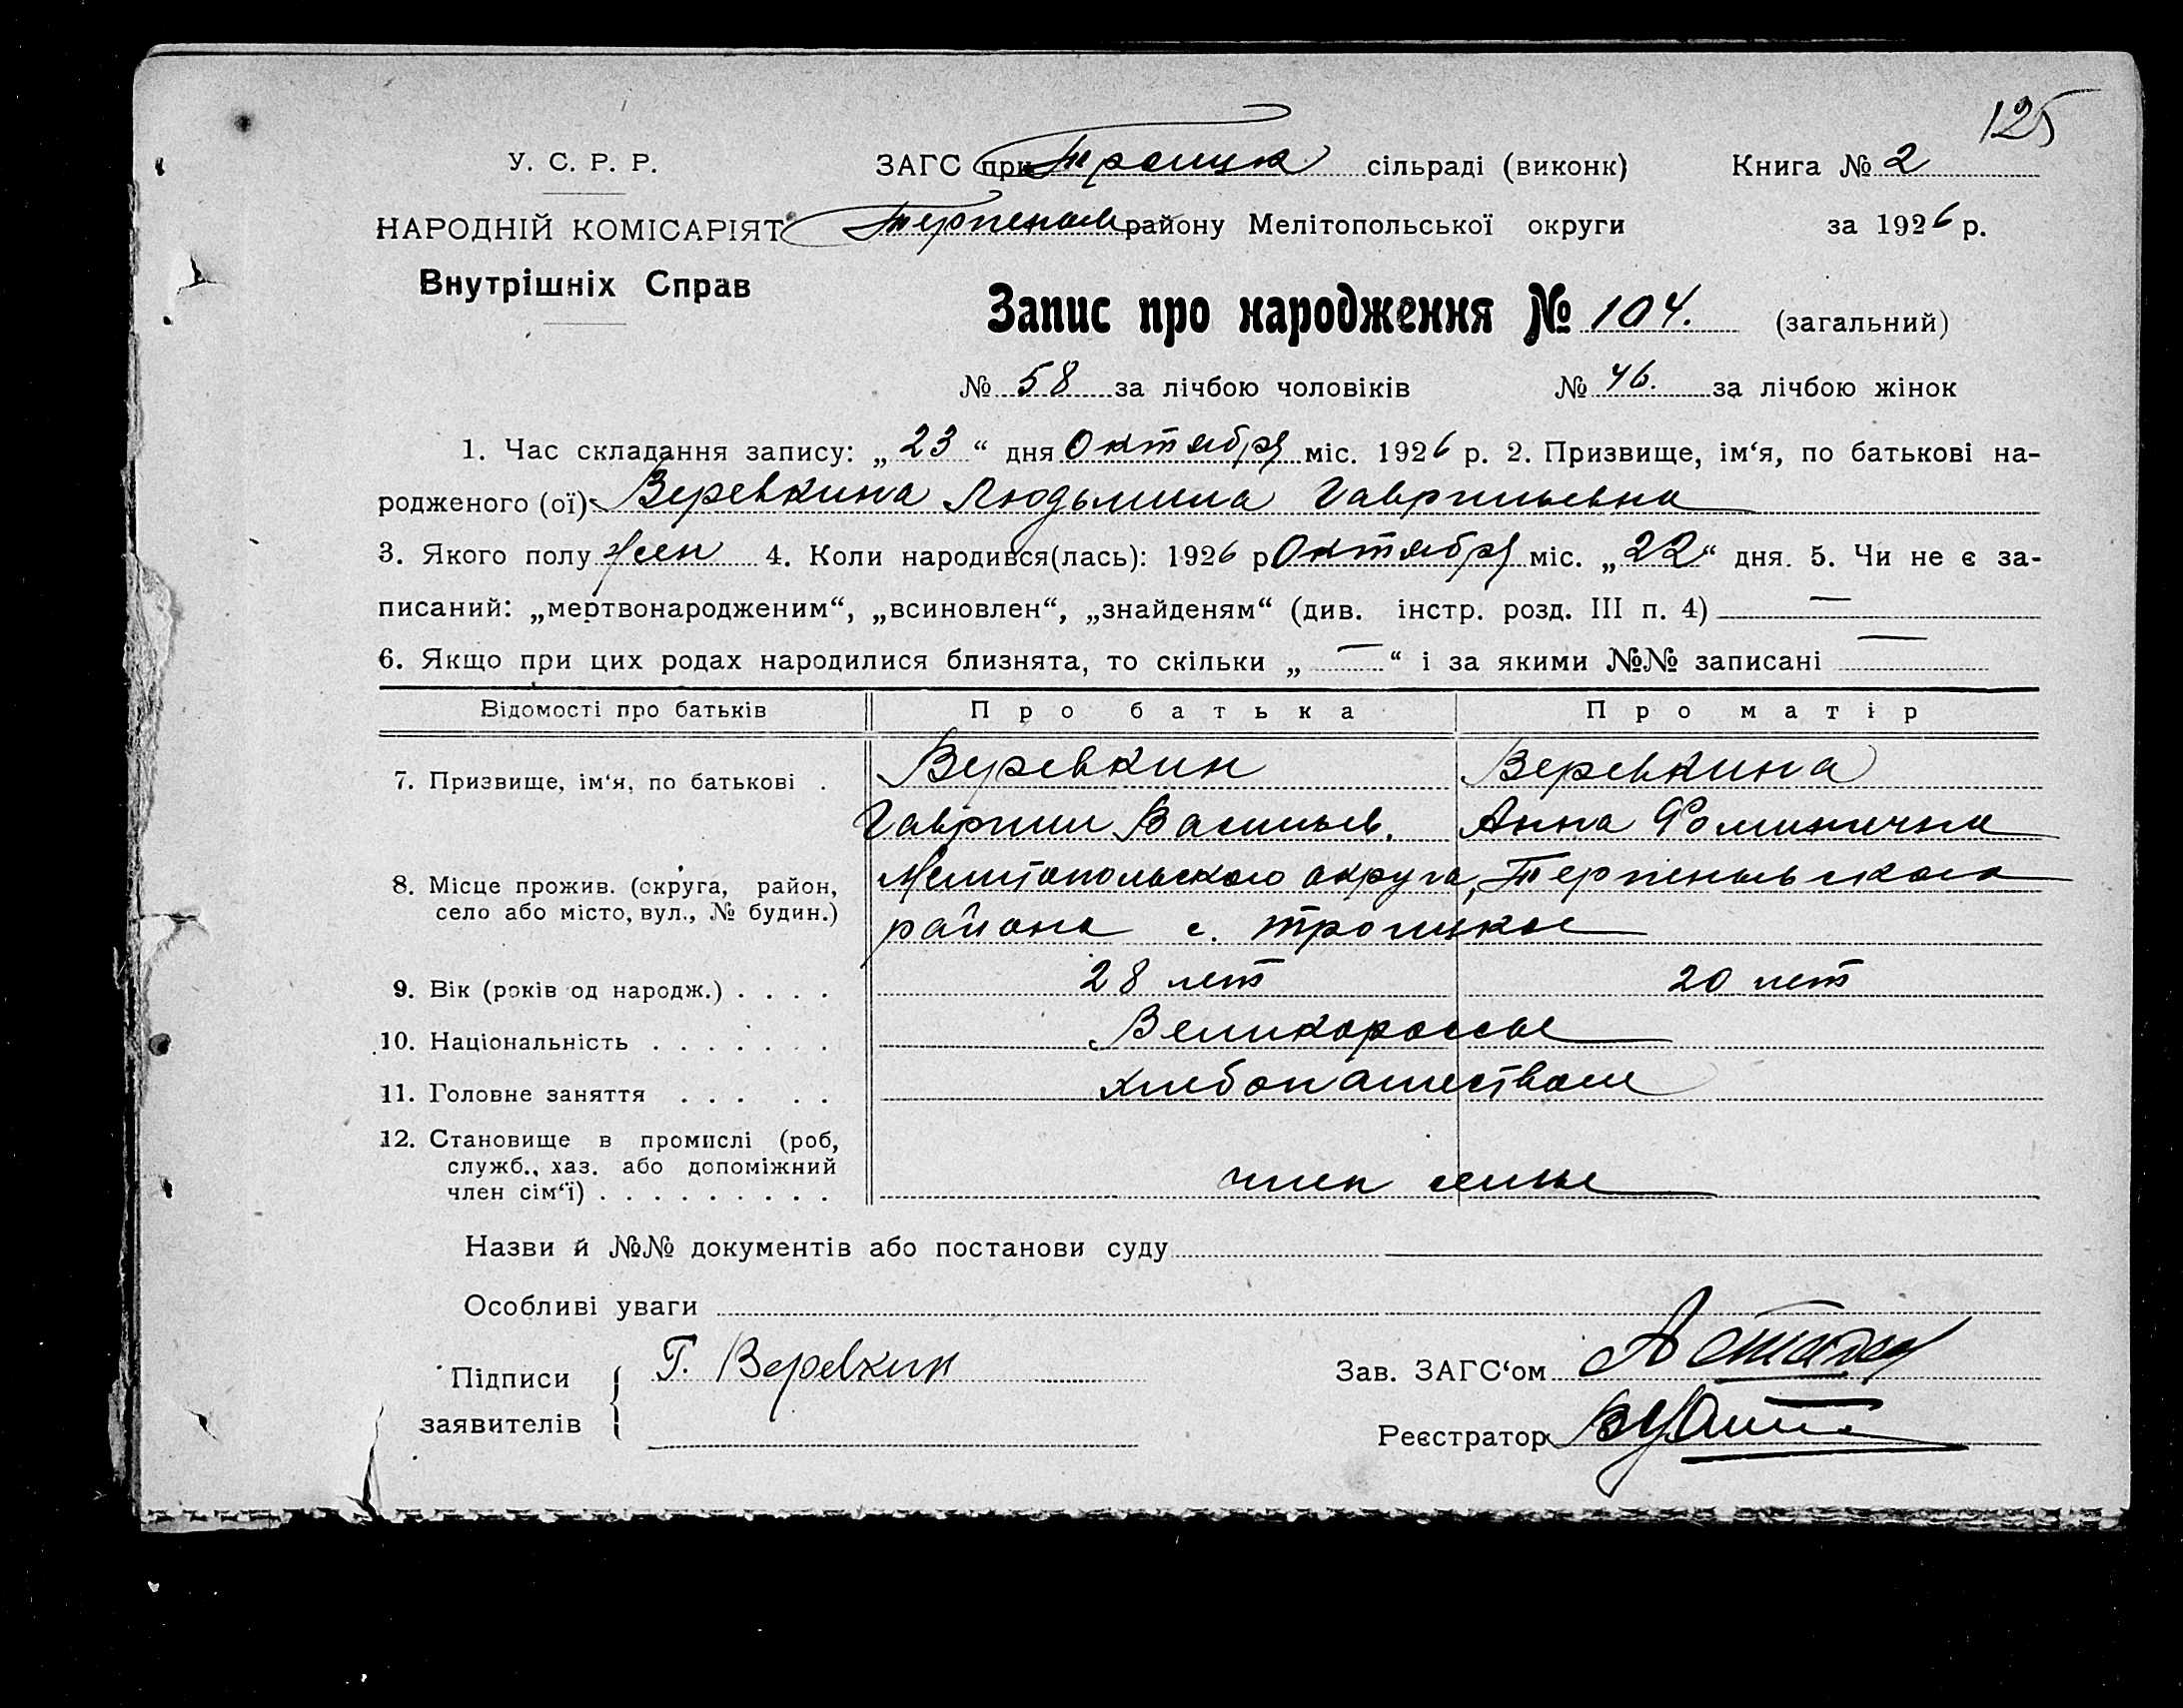 125
У. С. Р. Р.
ЗАГС при Троицк сільраді (виконк)
Книга № 2
НАРОДНІЙ КОМІСАРІЯТ
Терпеньев району Мелітопольської округи
за 1926 р.
Внутрішніх Справ
Запис про народження № 104. (загальний)
№ 58 за лічбою чоловіків № 46. за лічбою жінок
1. Час складання запису: „ 23 “ дня Октября міс. 1926 р. 2. Призвище, ім‘я, по батькові на-
родженого (ої) Веревкина Людьмила Гаврильевна
3. Якого полу жен 4. Коли народився(лась): 1926 р Октября міс. „ 22 “ дня. 5. Чи не є за-
писаний: „мертвонародженим“, „всиновлен“, „знайденям“ (див. інстр. розд. III п. 4) —
6. Якщо при цих родах народилися близнята, то скільки „ — “ і за якими №№ записані —
Відомості про батьків Про батька Про матір
7. Призвище, ім‘я, по батькові . Веревкин Веревкина
Гавриил Васильев. Анна Фоминична
8. Місце прожив. (округа, район, село або місто, вул., № будин.) Мелитопольского округа, Терпеньевского
района с. Троицкое
9. Вік (років од народж.) . . . . 28 лет 20 лет
10. Національність . . . . . . . Великороссы
11. Головне заняття . . . . . хлебопашеством
12. Становище в промислі (роб,
служб., хаз. або допоміжний
член сім‘ї) . . . . . . . . . член семьи
Назви й №№ документів або постанови суду
Особливі уваги
Підписи заявителів Г. Веревкин
Зав. ЗАГС‘ом
Реєстратор